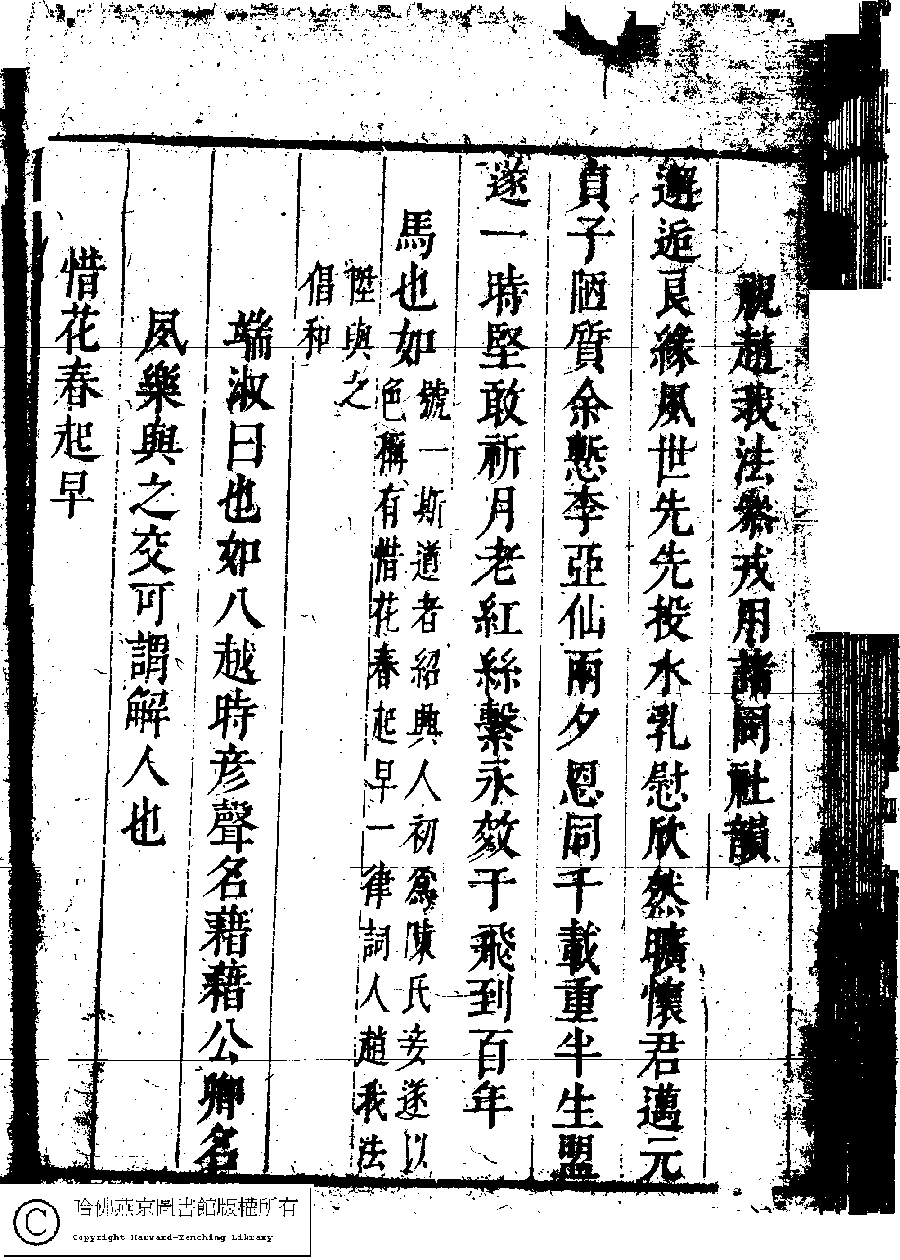 脫趙我法絫戎用諸同社韻
邂逅良緣夙世先先投水乳慰欣然曠懷君邁元
貞子陋質余慙李亞仙兩夕恩同千載重半生盟
遂一時堅敢祈月老紅絲繫永效于飛到百年
馬也如
號一斯道者紹興人初為陳氏妾遂以
色稱有惜花春起早一律詞人趙我法
陞與之
倡和
端淑曰也如八越時彦聲名藉藉公卿名
夙樂與之交可謂解人也
惜花春起早
哈佛燕京圖書館版權所有
Copyright Harvard-Yenching Library